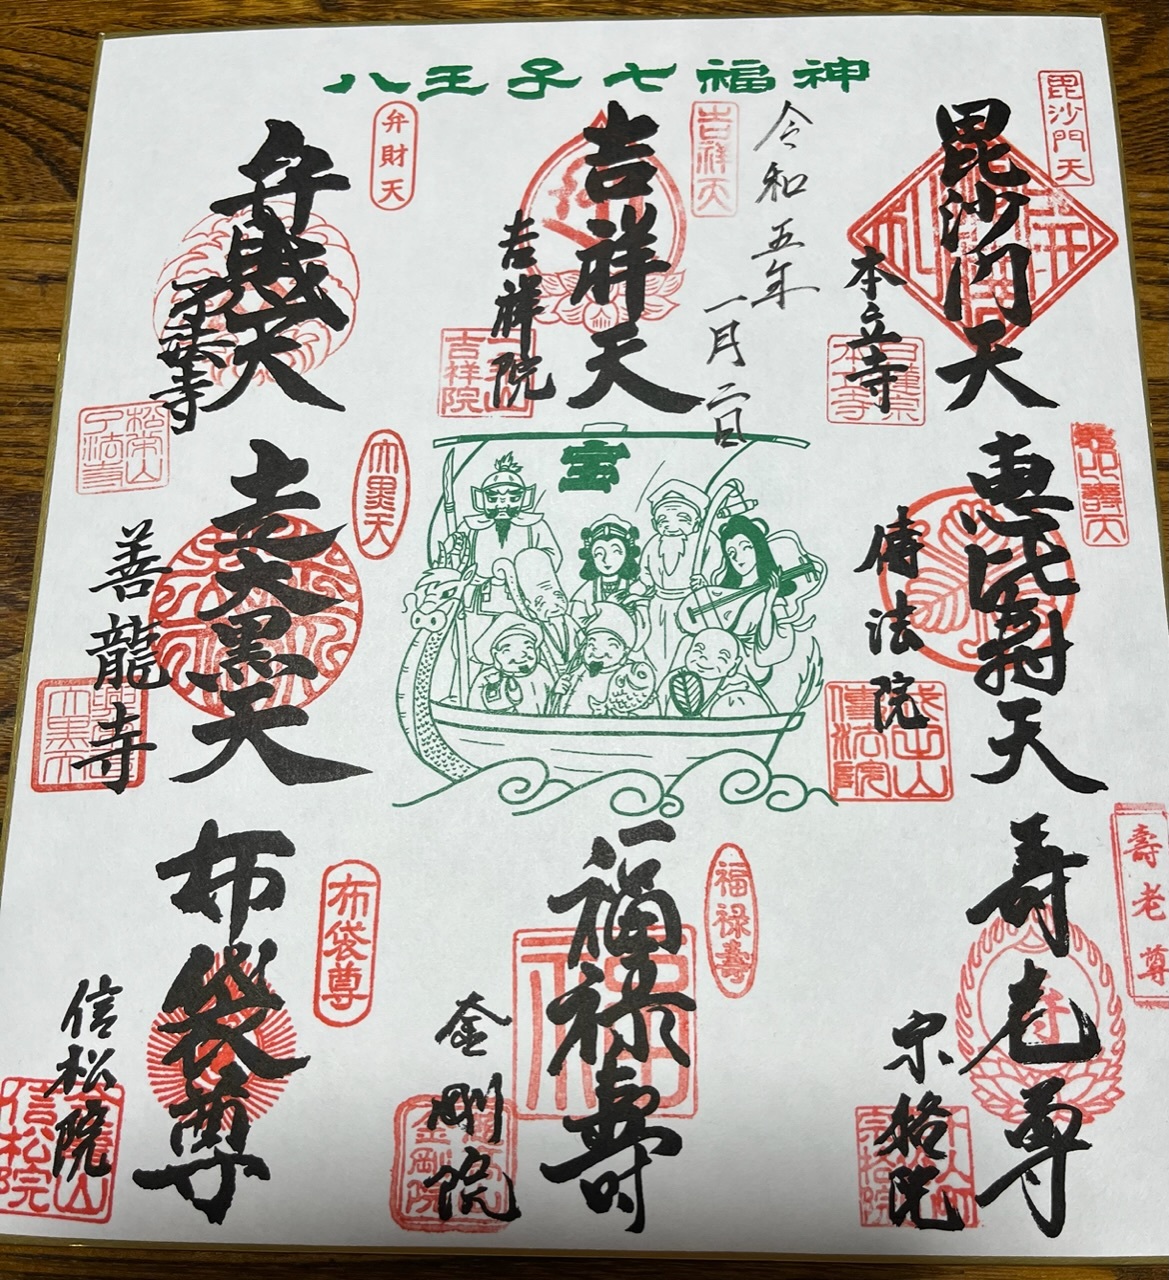 八王子七福神
毘沙門天
毘沙門天
本立寺
令和五年
一月二日
吉祥天
吉祥天
吉祥院
吉祥院
弁財天
弁財天
松栄山
了法寺
恵比寿天
傳法院
傳法院
宝
大黒天
走大黒天
善龍寺
壽老尊
寿老尊
宗格院
宗格院
福禄壽
福禄寿
金剛院
金剛院
布袋尊
布袋尊
信松院
信松院